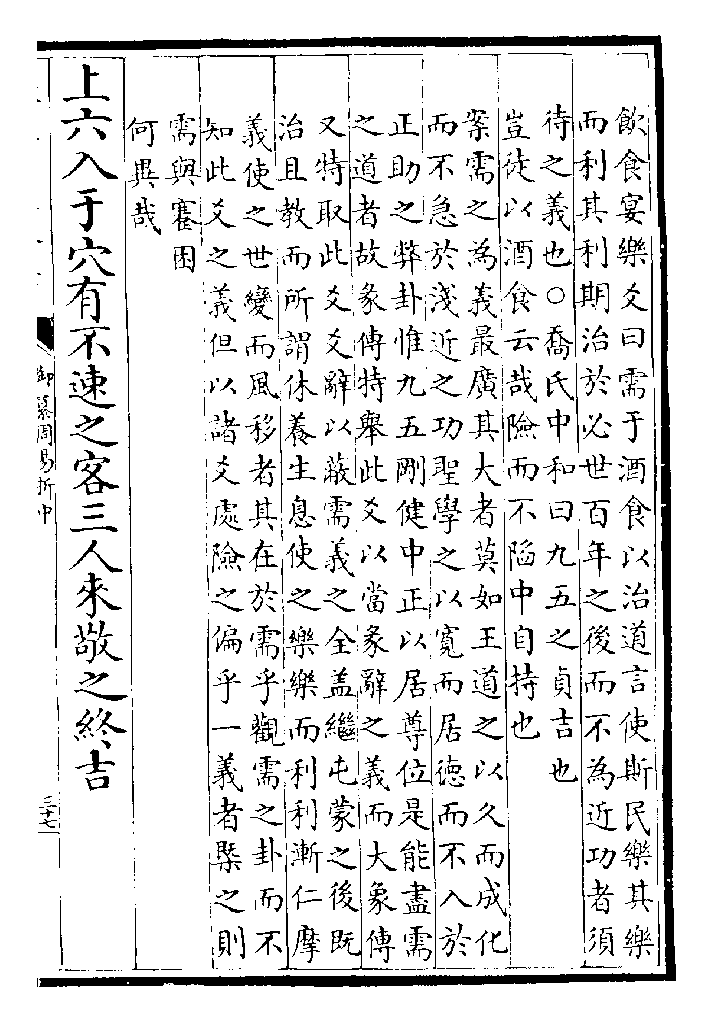 飲食宴樂爻曰需于酒食以治道言使斯民樂其樂
而利其利期治於必世百年之後而不為近功者須
待之義也○喬氏中和曰九五之貞吉也
豈徒以酒食云哉險而不陷中自持也
案需之為義最廣其大者莫如王道之以久而成化
而不急於淺近之功聖學之以寬而居德而不入於
正助之弊卦惟九五剛健中正以居尊位是能盡需
之道者故彖傳特舉此爻以當彖辭之義而大象傳
又特取此爻爻辭以蔽需義之全盖繼屯蒙之後既
治且教而所謂休養生息使之樂樂而利利漸仁摩
義使之世變而風移者其在於需乎觀需之卦而不
知此爻之義但以諸爻處險之偏乎一義者槩之則
需與蹇困
何異哉
上六入于穴有不速之客三人來敬之終吉
御纂周易折中
三十七